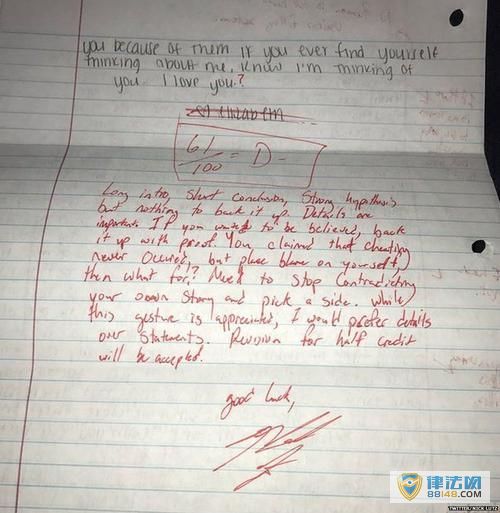 you because of them if you ever find yourself
thinking about me, know I'm thinking of
you. I love you?
61/100 = D-
Long intro, short conclusion, strong hypothesis
but nothing to back it up. Details are
important. If you wanted to be believed, back
it up with proof. You claimed that cheating
never occured, but place blame on yourself,
then what for? Need to stop contradicting
your own story and pick a side. While
this gesture is appreciated, I would prefer details
over statements. Revision for half credit
will be accepted.
good luck,
律法网
88148.com
TWITTER/NICK LUTZ